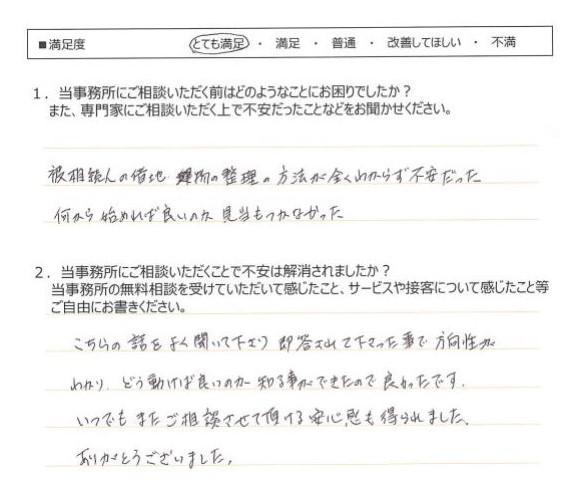 ■満足度 とても満足 ・ 満足 ・ 普通 ・ 改善してほしい ・ 不満
1．当事務所にご相談いただく前はどのようなことにお困りでしたか？
また、専門家にご相談いただく上で不安だったことなどをお聞かせください。
被相続人の借地 の整理の方法が全くわからず不安だった
何から始めれば良いのか見当もつかなかった
2．当事務所にご相談いただくことで不安は解消されましたか？
当事務所の無料相談を受けていただいて感じたこと、サービスや接客について感じたこと等
ご自由にお書きください。
こちらの話をよく聞いて下さり即答されて下さった事で方向性が
わかり、どう動けば良いのか知る事ができたので良かったです。
いつでもまたご相談させて頂ける安心感も得られました。
ありがとうございました。